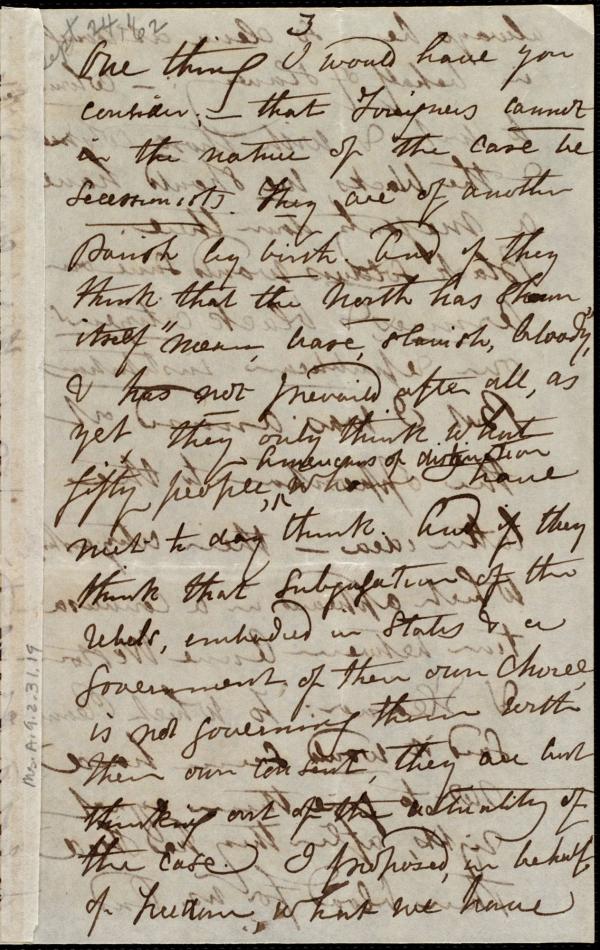 Sept 24. '62
3
One thing I would have you
consider; — that Foreigners cannot
in the nature of the case be
Secessionists. They are of another
Parish by birth. And if they
think that the North has shewn
itself "mean, base, slavish, bloody",
& has not prevailed after all, as
yet they only think what
Americans of distinction
fifty people, who I have
met to day think. And if they
think that Subjugation of the
rebels, embodied in States & a
Government of their own choice,
is not governing them with
their own consent, they are but
thinking out of the actuality of
the case. I proposed, in behalf
of freedom, what we have
Ms. A. 9. 2. 31. 19